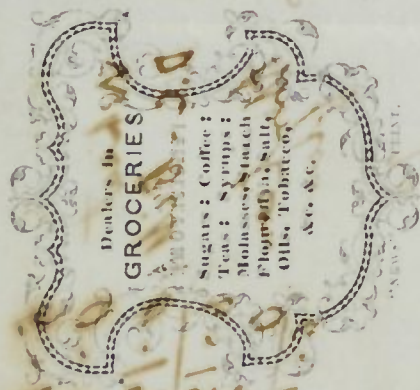 Dealers in
GROCERIES
Sugars: Coffee:
Teas: Syrups:
Molasses, Starch
Flour, Fish, Salt,
Oils, Tobacco,
&c. &c.